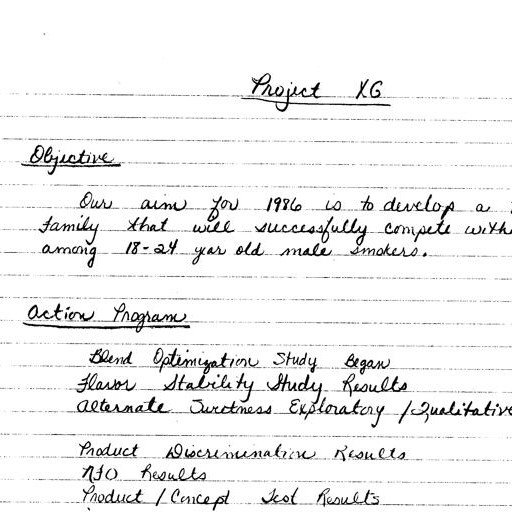 Project XG
Objective
Our aim for 1986 is to develop a
family that will successfully compete with
among 18-24 year old male smokers.
Action Program
Blend Optimization Study Began
Flavor Stability Study Results
Alternate Sweetness Exploratory / Qualitative
Product Discrimination Results
NFO Results
Product / Concept Test Results